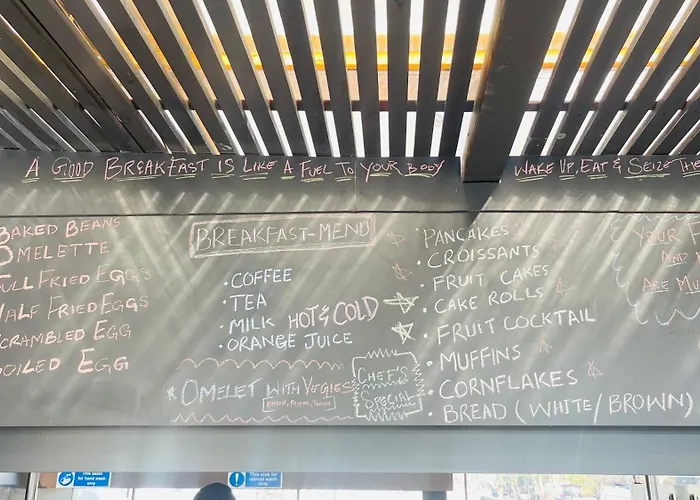 A GOOD BREAKFAST IS LIKE A FUEL TO YOUR BODY
WAKE UP, EAT & SEIZE THE
BAKED BEANS
OMELETTE
FULL FRIED EGGS
HALF FRIED EGGS
SCRAMBLED EGG
BOILED EGG
BREAKFAST-MENU
• COFFEE
• TEA
• MILK HOT & COLD
• ORANGE JUICE
OMELET WITH VEGIES
CHEF'S
SPECIAL
• PANCAKES
• CROISSANTS
• FRUIT CAKES
• CAKE ROLLS
• FRUIT COCKTAIL
• MUFFINS
• CORNFLAKES
• BREAD (WHITE/BROWN)
YOUR F
AND
ARE MU
This sink
for hand wash
only
This sink for
utensil wash
only